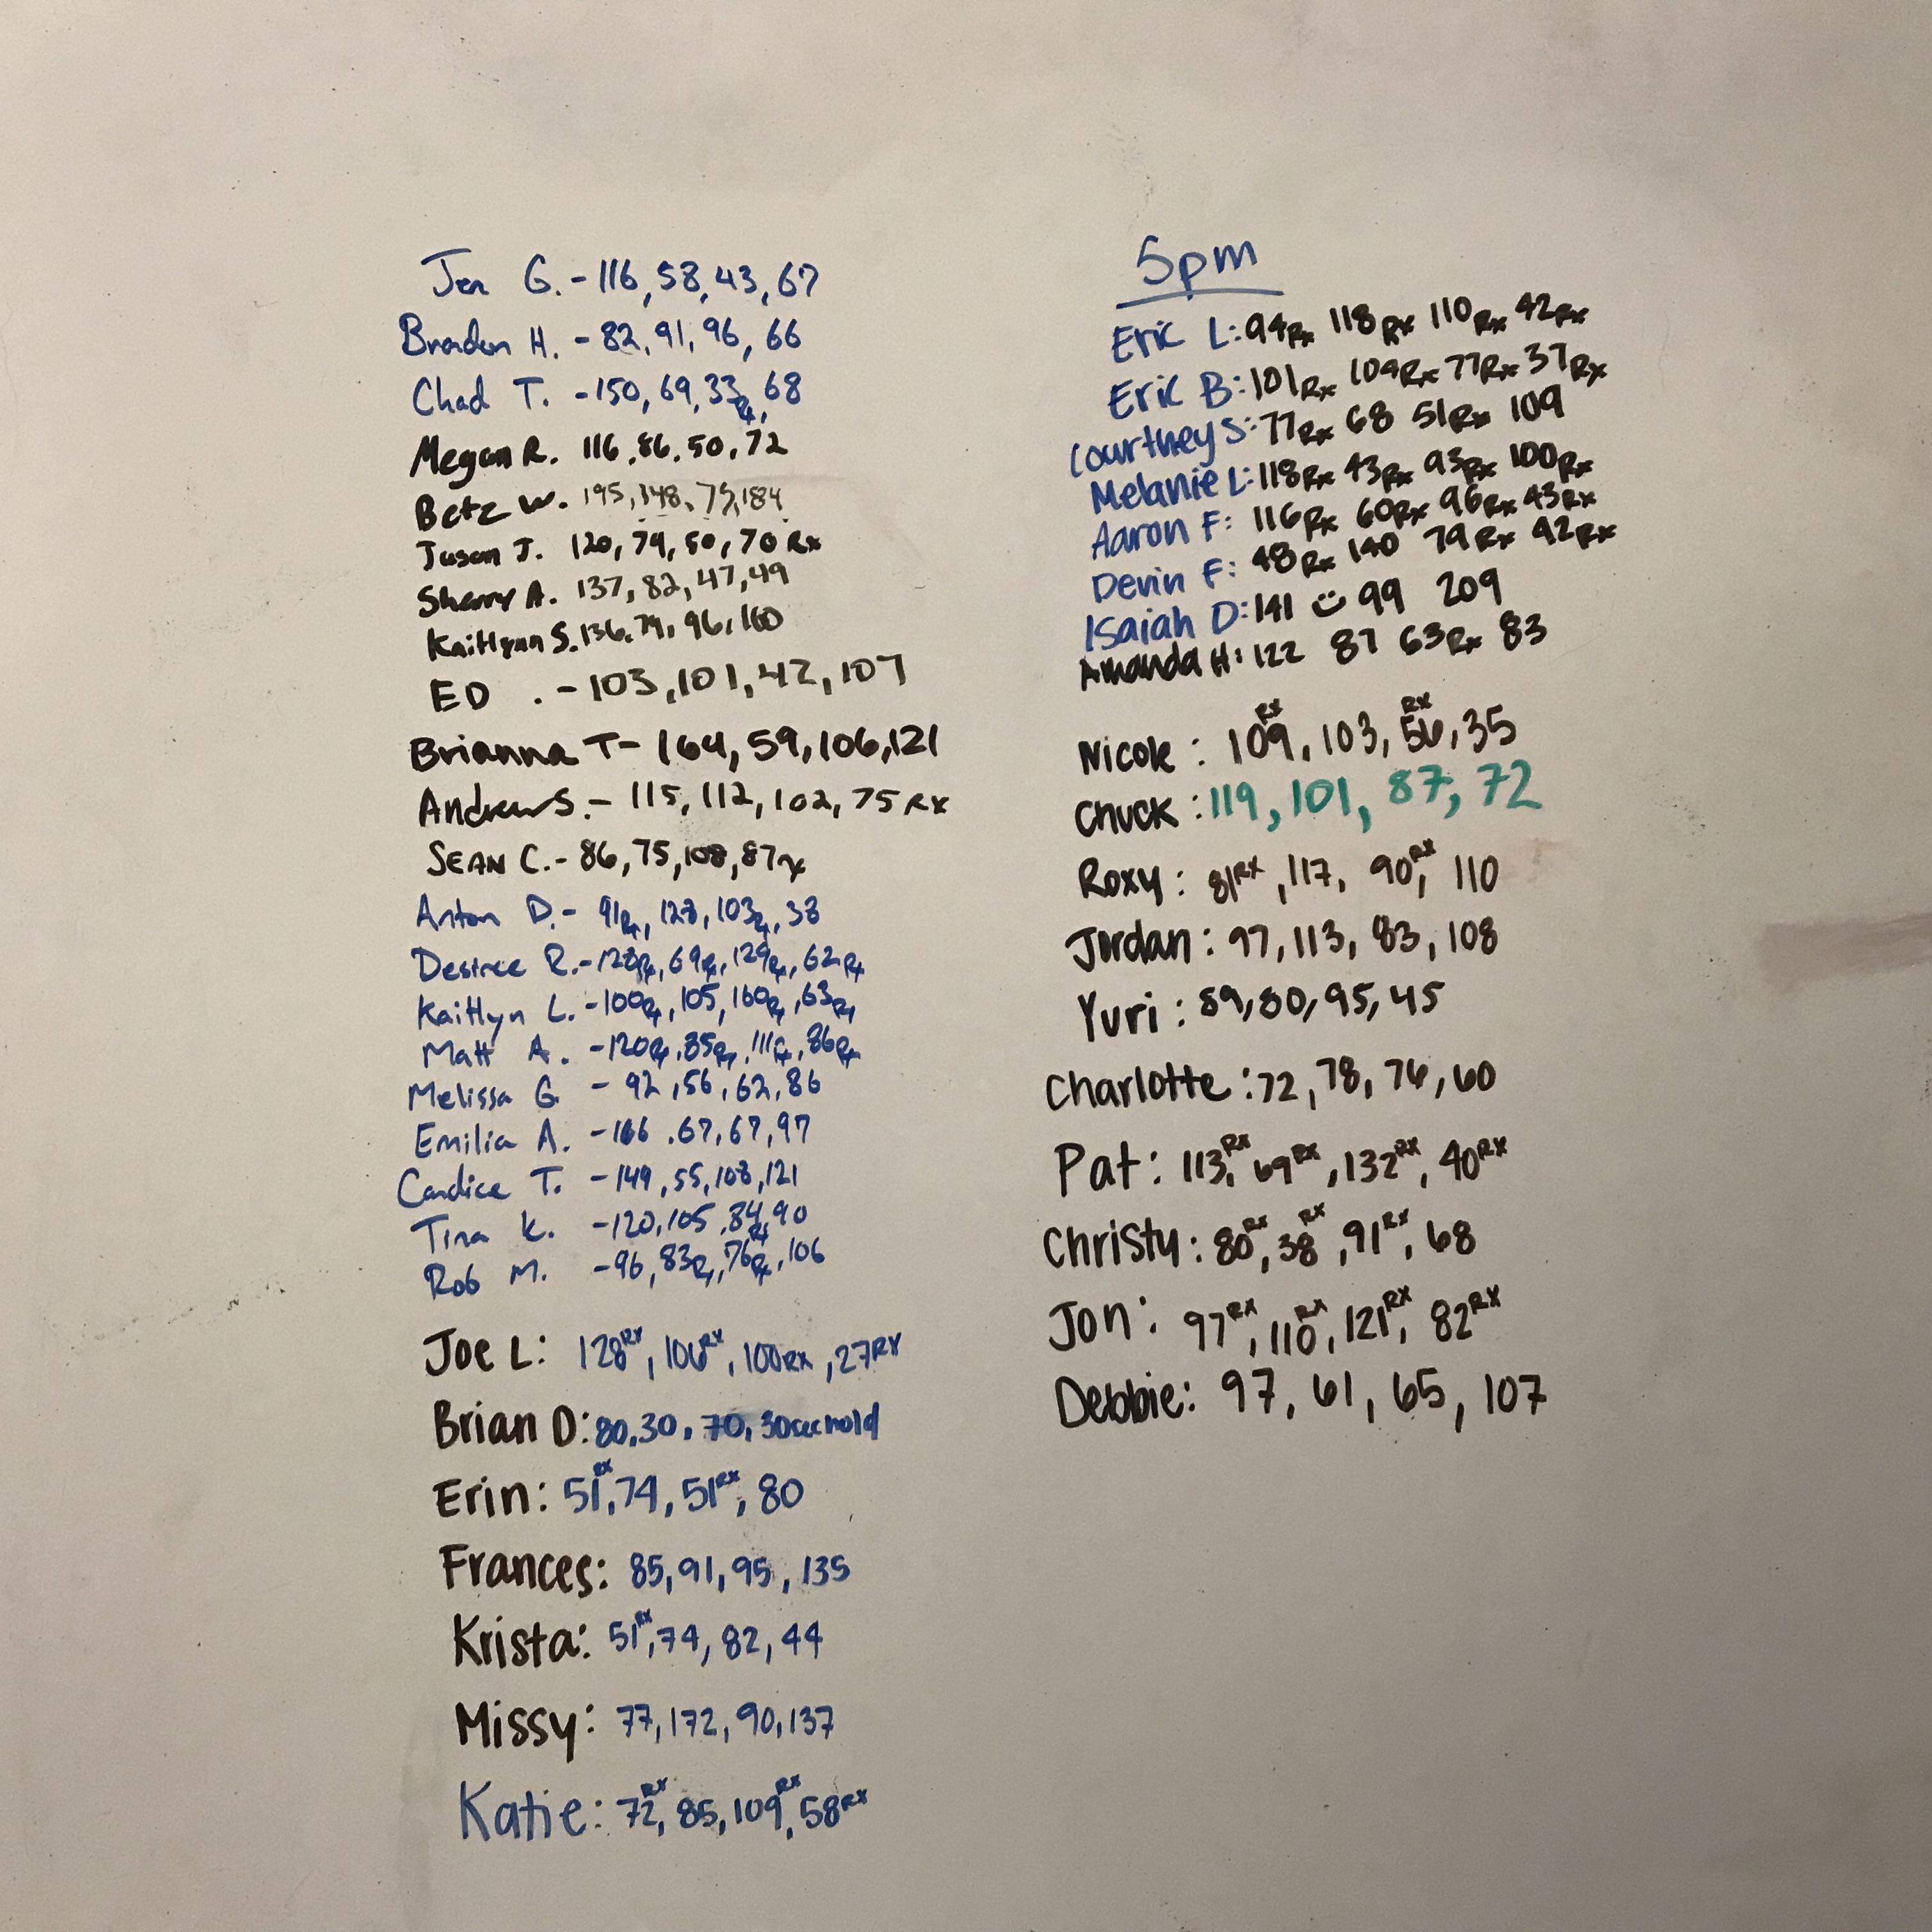 Jen G. - 116, 58, 43, 67
Braden H. - 82, 91, 96, 66
Chad T. - 150, 69, 33Rx, 68
Megan R. 116, 86, 50, 72
Betz W. 195, 148, 75, 184
Jason J. 120, 74, 50, 70 Rx
Sherry A. 137, 82, 47, 49
Kaitlynn S. 136, 74, 96, 160
ED . - 103, 101, 42, 107
Brianna T - 164, 59, 106, 121
Andrew S. - 115, 112, 102, 75 RX
SEAN C. - 86, 75, 108, 87rx
Anton D. - 91Rx, 128, 103Rx, 38
Desiree R. - 128Rx, 69Rx, 129Rx, 62Rx
Kaitlyn L. - 100Rx, 105, 160Rx, 63Rx
Matt A. - 120Rx, 85Rx, 111Rx, 86Rx
Melissa G. - 92, 56, 62, 86
Emilia A. - 166, 67, 67, 97
Candice T. - 149, 55, 108, 121
Tina K. - 120, 105, 84Rx, 90
Rob M. - 96, 83Rx, 76Rx, 106
Joe L: 128RX, 106RX, 100RX, 27RX
Brian D: 80, 30, 70, 30 sec hold
Erin: 51RX, 74, 51RX, 80
Frances: 85, 91, 95, 135
Krista: 51RX, 74, 82, 44
Missy: 77, 172, 90, 137
Katie: 72RX, 85, 109RX, 58RX
5pm
Eric L: 94Rx 118Rx 110Rx 42Rx
Eric B: 101Rx 109Rx 77Rx 37Rx
Courtney S: 77Rx 68 51Rx 109
Melanie L: 118Rx 43Rx 93Rx 100Rx
Aaron F: 116Rx 60Rx 96Rx 43Rx
Devin F: 48Rx 140 79Rx 42Rx
Isaiah D: 141 99 209
Amanda H: 122 87 63Rx 83
Nicole: 109RX, 103, 56RX, 35
Chuck: 119, 101, 87, 72
Roxy: 81RX, 117, 90RX, 110
Jordan: 97, 113, 83, 108
Yuri: 89, 80, 95, 45
Charlotte: 72, 78, 76, 60
Pat: 113RX, 69RX, 132RX, 40RX
Christy: 80RX, 38RX, 91RX, 68
Jon: 97RX, 110RX, 121RX, 82RX
Debbie: 97, 61, 65, 107